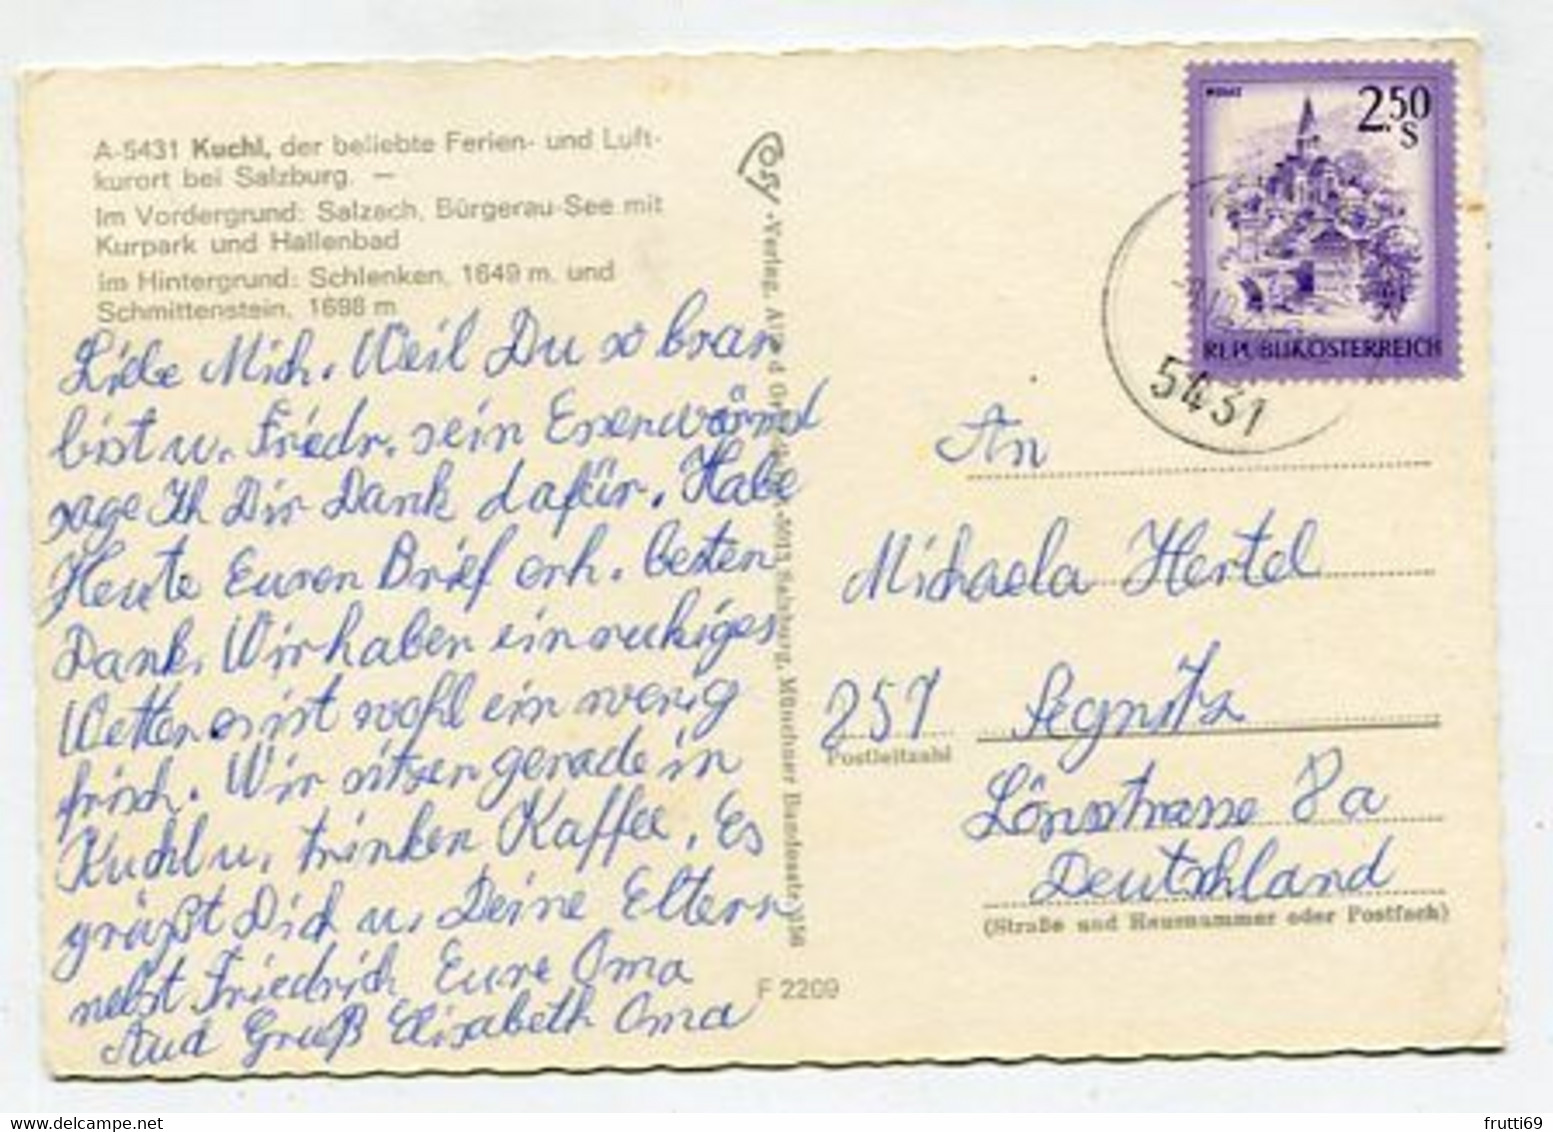 A-5431 Kuchl, der beliebte Ferien- und Luft-
kurort bei Salzburg. —
Im Vordergrund: Salzach, Bürgerau-See mit
Kurpark und Hallenbad
im Hintergrund: Schlenken, 1649 m, und
Schmittenstein, 1698 m
Liebe Mich. Weil Du so brav
bist u. Friedr. sein Essen wärmst
sage Ich Dir Dank dafür. Habe
Heute Euren Brief erh. besten
Dank. Wir haben ein ruhiges
Wetter es ist wohl ein wenig
frisch. Wir sitzen gerade in
Kuchl u. trinken Kaffee. Es
grüßt Dich u. Deine Eltern
nebst Friedrich Eure Oma
Auch Gruß Elisabeth Oma
Cosy-Verlag, 5013 Salzburg, Münchner Bundesstr. 156
F 2209
2.50
S
REPUBLIK ÖSTERREICH
5431
An
Michaela Hertel
Segnitz
Postleitzahl
Lönsstrasse 8a
Deutschland
(Straße und Hausnummer oder Postfach)
frutti69